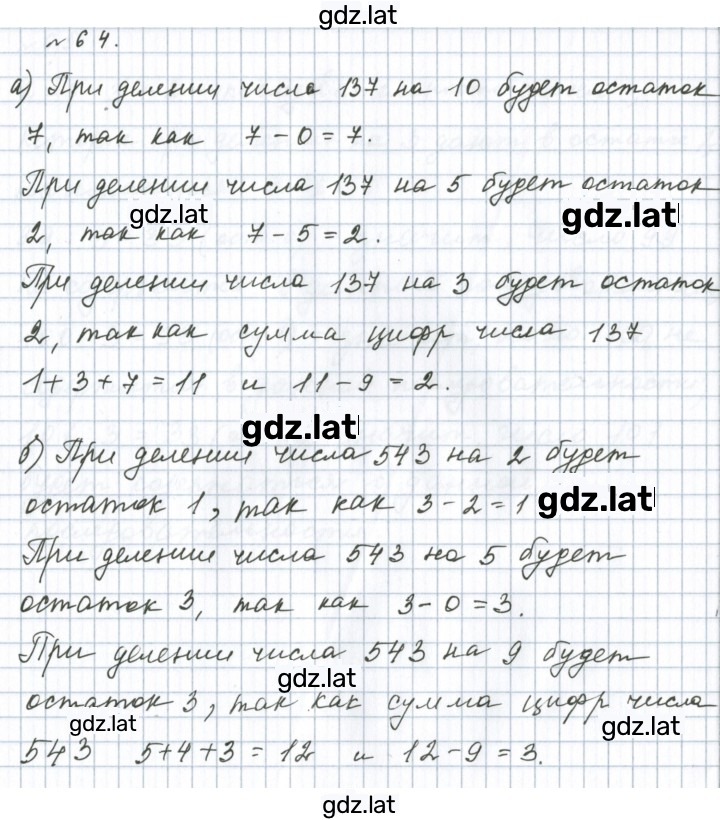 gdz.lat
№ 64.
а) При делении числа 137 на 10 будет остаток
7, так как 7 - 0 = 7.
При делении числа 137 на 5 будет остаток
gdz.lat
gdz.lat
2, так как 7 - 5 = 2.
При делении числа 137 на 3 будет остаток
2, так как сумма цифр числа 137
1 + 3 + 7 = 11 и 11 - 9 = 2.
gdz.lat
б) При делении числа 543 на 2 будет
остаток 1, так как 3 - 2 = 1
gdz.lat
При делении числа 543 на 5 будет
остаток 3, так как 3 - 0 = 3.
При делении числа 543 на 9 будет
gdz.lat
остаток 3, так как сумма цифр числа
gdz.lat
gdz.lat
543 5 + 4 + 3 = 12 и 12 - 9 = 3.
gdz.lat